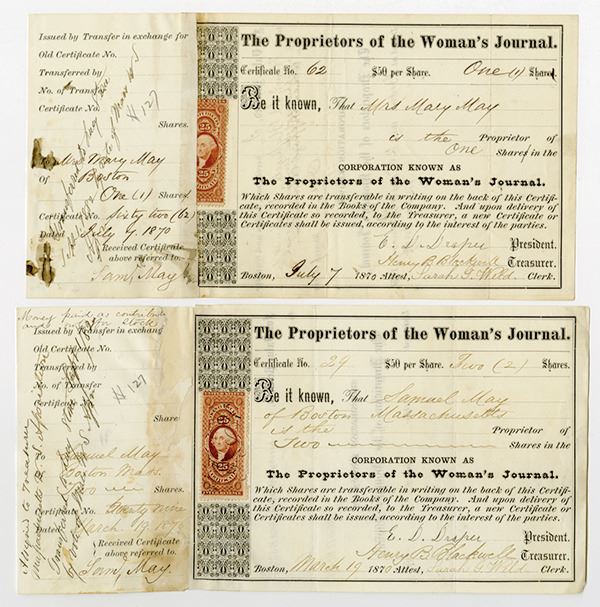 Issued by Transfer in exchange for
Old Certificate No.
Transferred by
No. of Transfer
Certificate No.
Shares.
H 127
To Mrs Mary May
Of Boston
One (1) Shares
Certificate No. Sixty two (62)
Dated July 7 1870
Received Certificate
above referred to.
Saml May
25
The Proprietors of the Woman's Journal.
Certificate No. 62 $50 per Share. One (1) Shares.
Be it known, That Mrs Mary May
is the Proprietor of
One Shares in the
CORPORATION KNOWN AS
The Proprietors of the Woman's Journal.
Which Shares are transferable in writing on the back of this Certifi-
cate, recorded in the Books of the Company. And upon delivery of
this Certificate so recorded, to the Treasurer, a new Certificate or
Certificates shall be issued, according to the interest of the parties.
E. D. Draper President.
Henry B. Blackwell Treasurer.
Boston, July 7 1870 Attest, Sarah G. Wild Clerk.
Money paid as contribution
Issued by Transfer in exchange
Old Certificate No.
Transferred by
No. of Transfer
Certificate No.
Share
H 127
To Samuel May
Of Boston Mass.
Two Shares.
Certificate No. Twenty Nine
Dated March 19 1870
Received Certificate
above referred to.
Saml May.
25 25
The Proprietors of the Woman's Journal.
Certificate No. 29 $50 per Share. Two (2) Shares.
Be it known, That Samuel May
of Boston Massachusetts
is the Proprietor of
Two Shares in the
CORPORATION KNOWN AS
The Proprietors of the Woman's Journal.
Which Shares are transferable in writing on the back of this Certifi-
cate, recorded in the Books of the Company. And upon delivery of
this Certificate so recorded, to the Treasurer, a new Certificate or
Certificates shall be issued, according to the interest of the parties.
E. D. Draper President.
Henry B. Blackwell Treasurer.
Boston, March 19 1870 Attest, Sarah G. Wild Clerk.